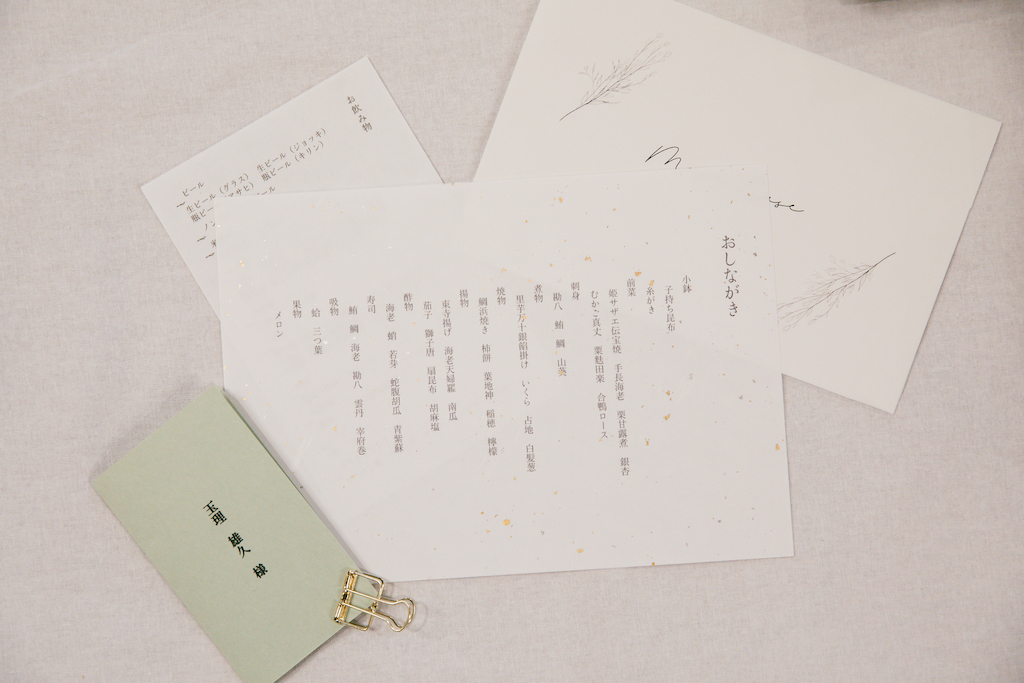 おしながき
小鉢
子持ち昆布
糸がき
前菜
姫サザエ伝宝焼 手長海老 栗甘露煮 銀杏
むかご真丈 粟麩田楽 合鴨ロース
刺身
勘八 鮪 鯛 山葵
煮物
里芋万十銀餡掛け いくら 占地 白髪葱
焼物
鯛浜焼き 柿餅 葉地神 稲穂 檸檬
揚物
東寺揚げ 海老天婦羅 南瓜
茄子 獅子唐 扇昆布 胡麻塩
酢物
海老 蛸 若芽 蛇腹胡瓜 青紫蘇
寿司
鮪 鯛 海老 勘八 雲丹 宰府巻
吸物
蛤 三つ葉
果物
メロン
お飲み物
ビール
生ビール（グラス） 生ビール（ジョッキ）
瓶ビー アサヒ） 瓶ビール（キリン）
ノン ール
玉理 雄久 様